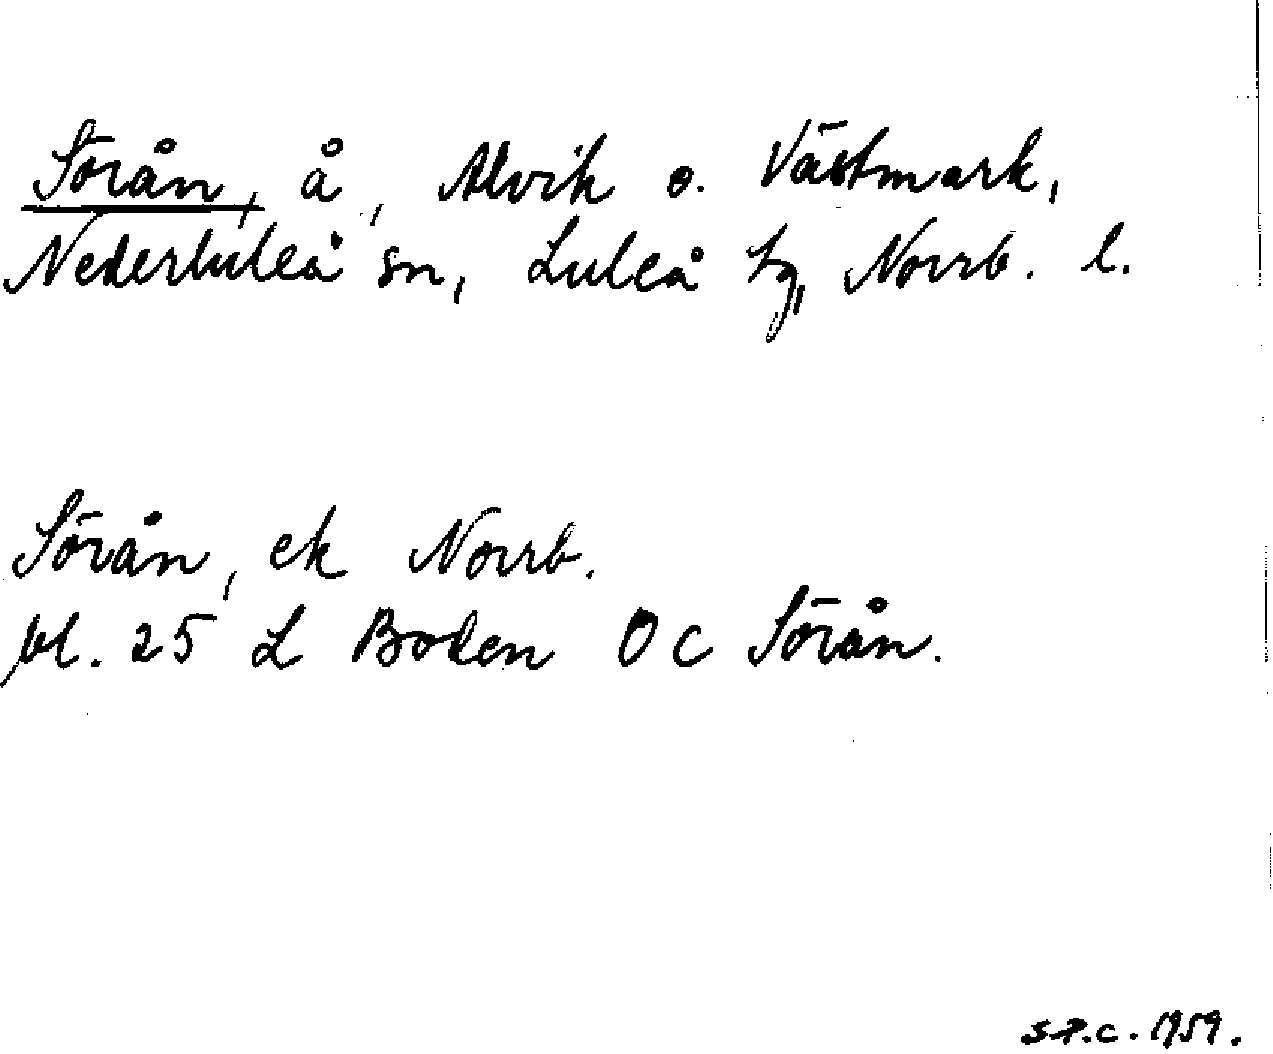 Sörån, å, Alvik o. Västmark,
Nederluleå sn, Luleå tg, Norrb. l.
Sörån, ek Norrb.
bl. 25 L Boden 0 C Sörån.
S.P.C. 1959.